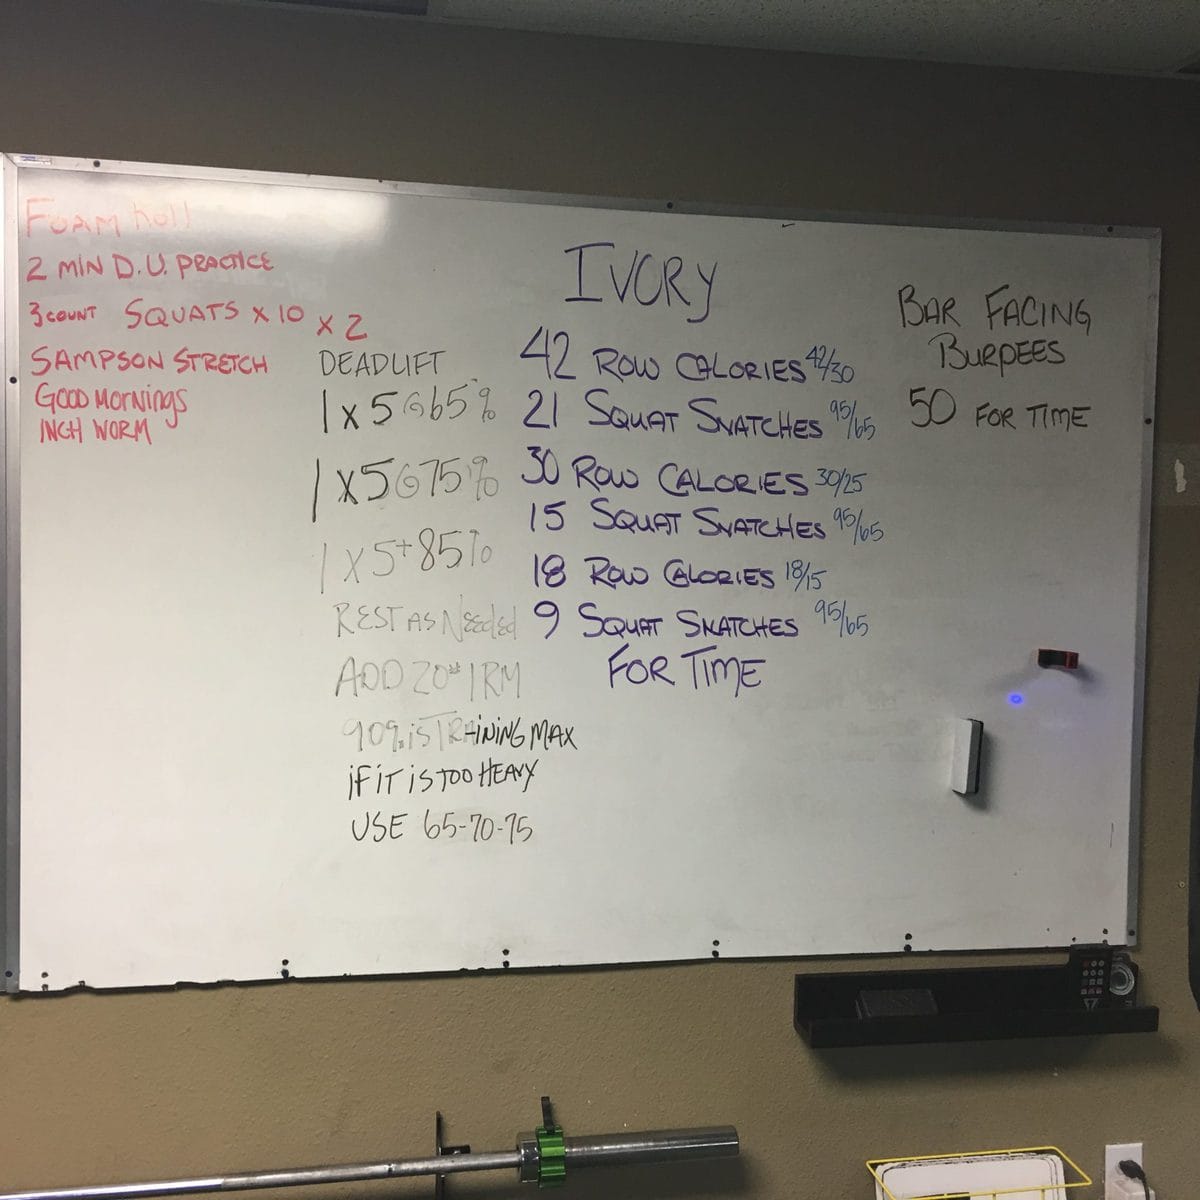 FOAM Roll
2 MIN D.U. PRACTICE
3 COUNT SQUATS X 10 X 2
SAMPSON STRETCH
GOOD MORNINGS
INCH WORM
DEADLIFT
1 X 5 @ 65%
1 X 5 @ 75%
1 X 5+ 85%
REST AS Needed
ADD 20# 1RM
90% iS TRAiNiNG MAX
iF iT iS TOO HEAVY
USE 65-70-75
IVORY
42 ROW CALORIES 42/30
21 SQUAT SNATCHES 95/65
30 ROW CALORIES 30/25
15 SQUAT SNATCHES 95/65
18 ROW CALORIES 18/15
9 SQUAT SNATCHES 95/65
FOR TIME
BAR FACING
BURPEES
50 FOR TIME